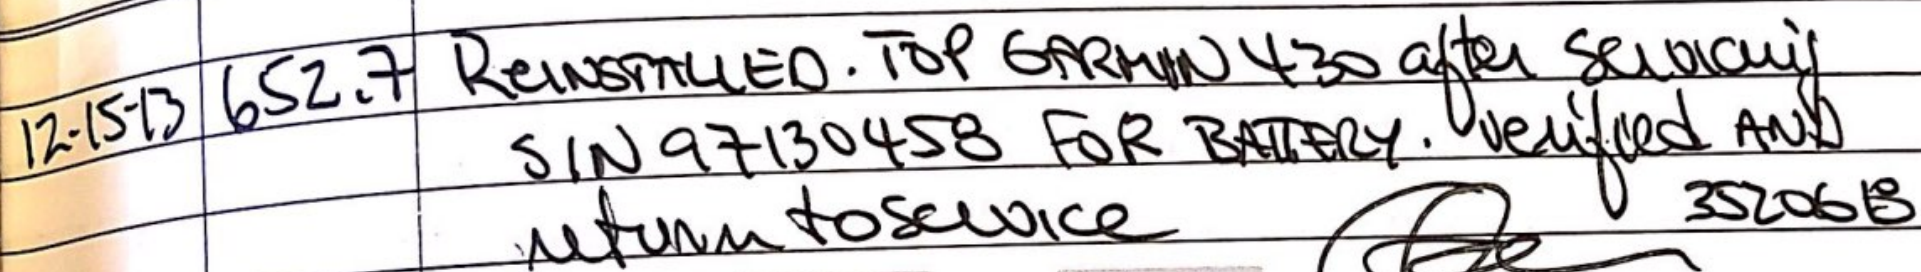 12-15-13 652.7 REINSTALLED. TOP GARMIN 430 after servicing
S/N 97130458 FOR BATTERY. Verified AND
return to service 3520618